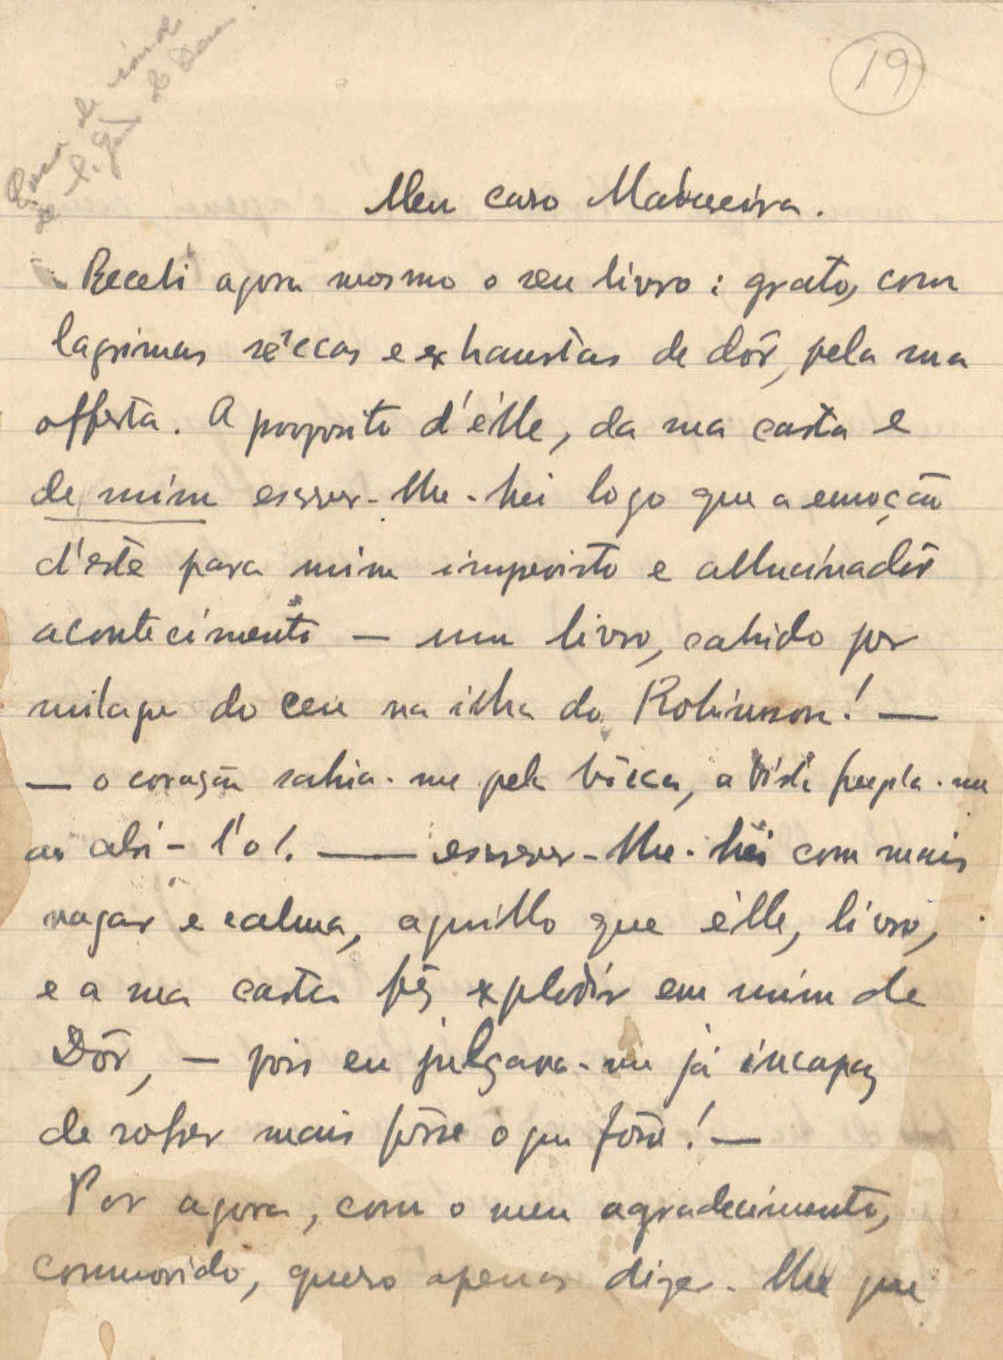 19
Meu caro Madureira.
Recebi agora mesmo o seu livro: grato, com
lagrimas sêccas e exhaustas de dôr, pela sua
offerta. A proposito d'élle, da sua carta e
de mim escrever-lhe-hei logo que a emoção
d'este para mim imprevisto e allucinadôr
acontecimento — um livro, cahido por
milagre do ceu na ilha do Robinson! —
— o coração sahia-me pela bôcca, a vista
ao abri-l'o!. — escrever-lhe-hei com mais
vagar e calma, aquillo que élle, livro,
e a sua carta fez explodir em mim de
Dôr, — pois eu julgava-me já incapaz
de sofrer mais fôsse o que fôsse! —
Por agora, com o meu agradecimento,
commovido, quero apenas dizer-lhe que